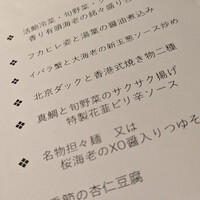 活鮑冷菜・旬野菜・
香り有頭海老の鉄々盛り
フカヒレ姿と湯葉の醤油煮込み
イバラ蟹と大海老の新玉葱ソース炒め
北京ダックと香港式焼き物二種
真鯛と旬野菜のサクサク揚げ
特製花韮ピリ辛ソース
名物担々麺 又は
桜海老のXO醤入りつゆそ
季節の杏仁豆腐